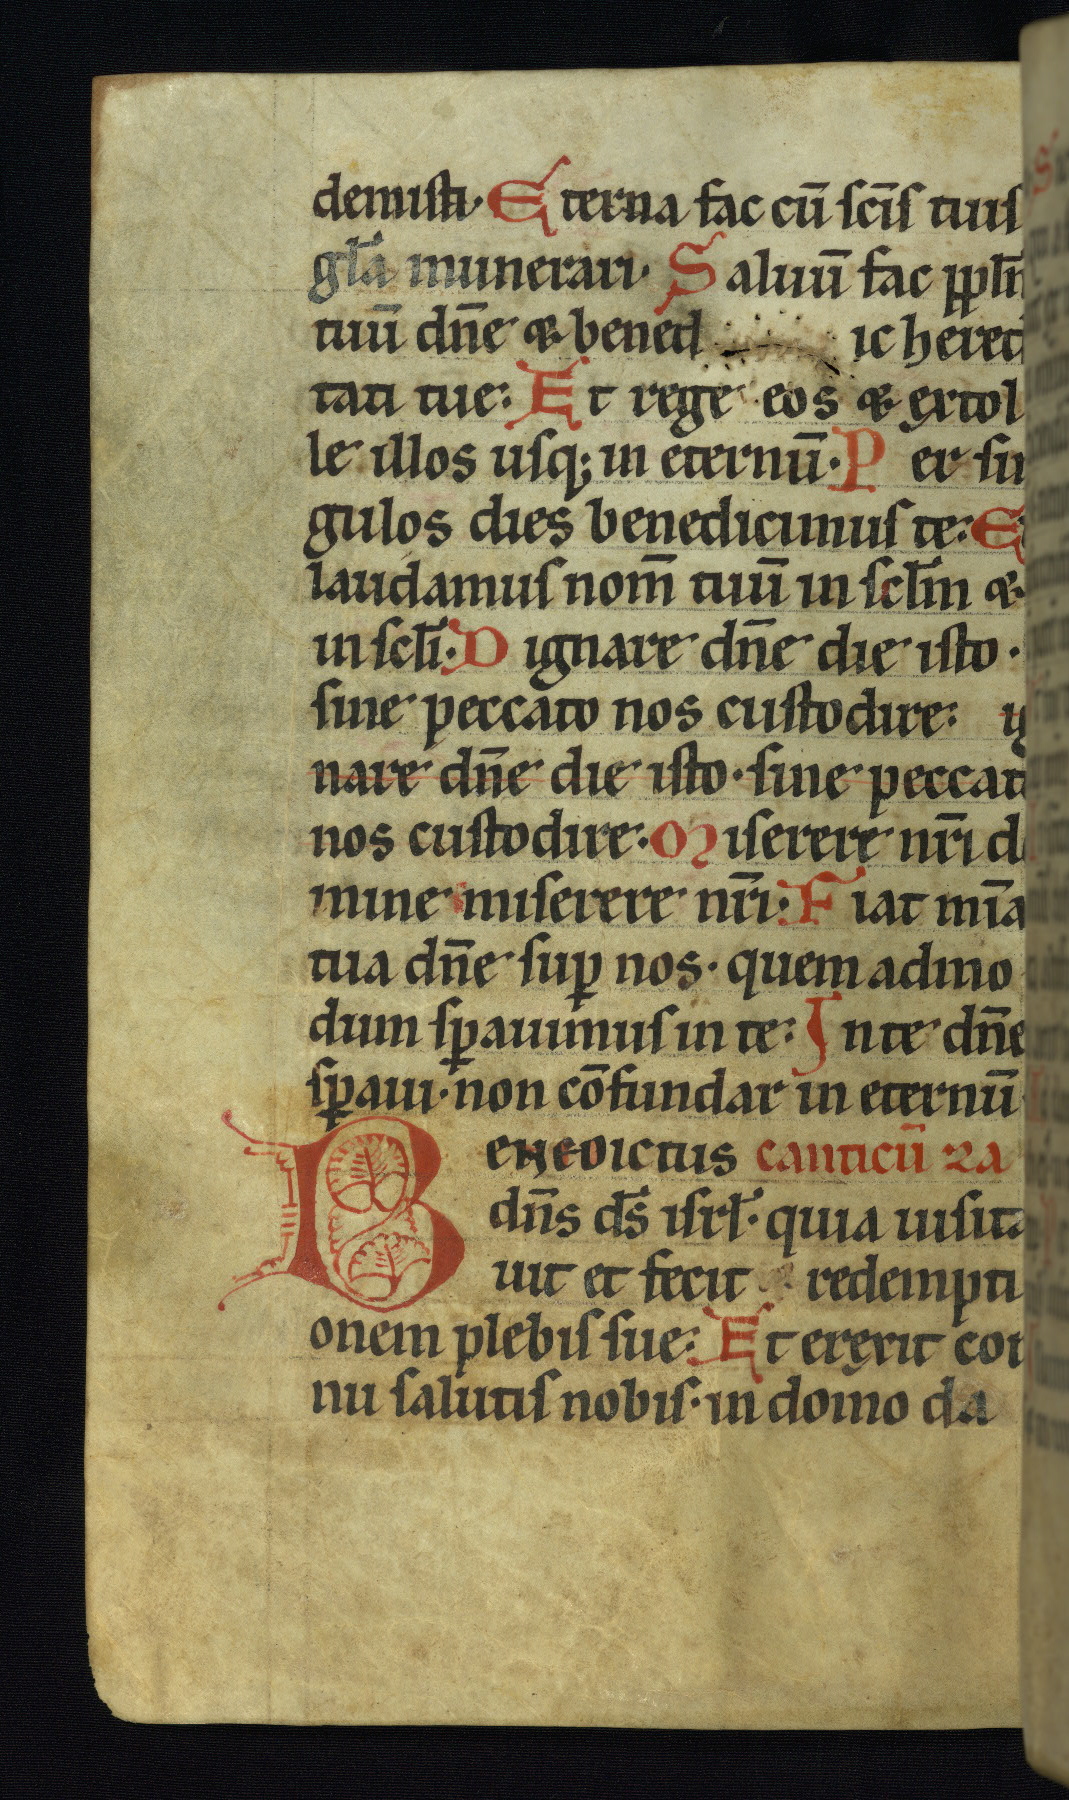 demisti· Eterna fac cū sc̄is tuis
gl̄a munerari· Saluū fac ppl̄m
tuū dn̄e & bened ic hered
tati tue: Et rege eos & extol
le illos usq; in eternū· Per sin
gulos dies benedicimus te: Et
laudamus nom̄ tuū in scl̄m &
in scl̄i· Dignare dn̄e die isto·
sine peccato nos custodire: ig
nare dn̄e die isto· sine peccato
nos custodire· Miserere nr̄i do
mine miserere nr̄i· Fiat mīa
tua dn̄e sup nos· quem admo
dum spauimus in te: In te dn̄e
spaui· non cōfundar in eternū
Benedictus canticū
dn̄s ds̄ isrl̄· quia uisita
uit et fecit redempti
onem plebis sue: Et erexit cor
nu salutis nobis· in domo da